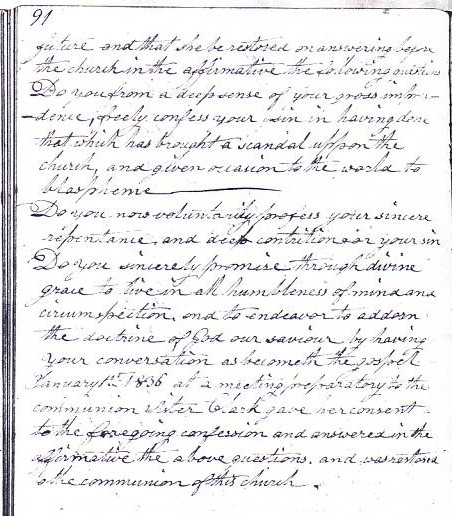 91
future and that she be restored on answering before
the church in the affirmative the following questions
Do you from a deep sense of your gross impru-
-dence, freely confess your sin in having done
that which has brought a scandal uppon the
church, and given occasion to the world to
blaspheme
Do you now voluntarily profess your sincere
repentance, and deep contrition for your sin
Do you sincerely promise through divine
grace to live in all humbleness of mind and
circumspection, and to endeavor to addorn
the doctrine of God our saviour by having
your conversation as becometh the gospel
January 1st 1836 at a meeting preparatory to the
communion sister Clark gave her consent
to the foregoing confession and answered in the
affirmative the above questions. and was restored
to the communion of this church.